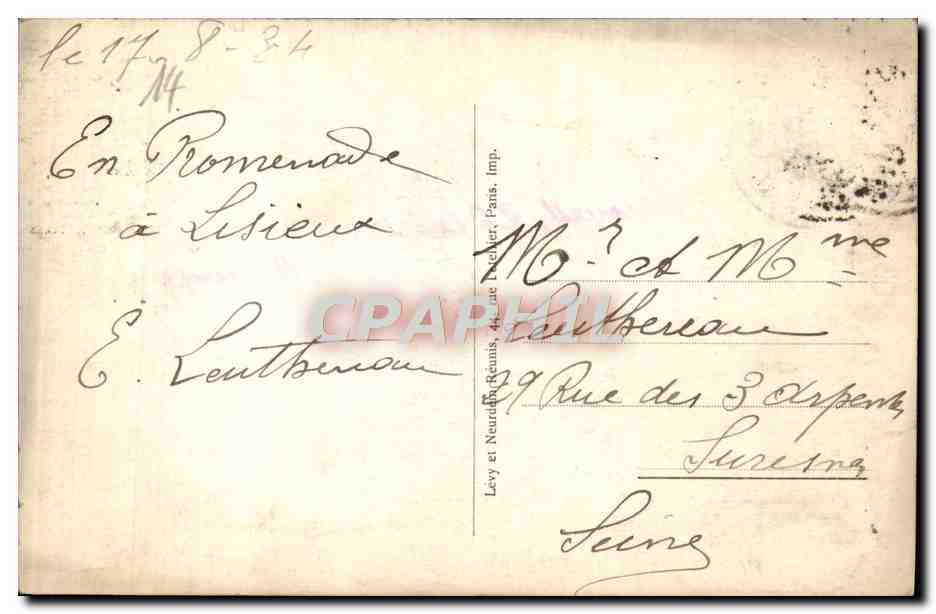 le 17-8-34
14
En Promenade
à Lisieux
E. Leuthereau
Lévy et Neurdein Réunis, 44, rue Letellier, Paris. Imp.
Mr et Mme
Leuthereau
29 Rue des 3 Arpents
Suresnes
Seine
CPAPHIL